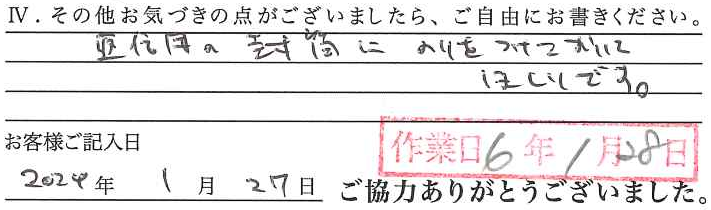 Ⅳ．その他お気づきの点がございましたら、ご自由にお書きください。
返信用の封筒にのりをつけておいて
ほしいです。
お客様ご記入日
作業日 6年 1月28日
2024年 1月27日 ご協力ありがとうございました。